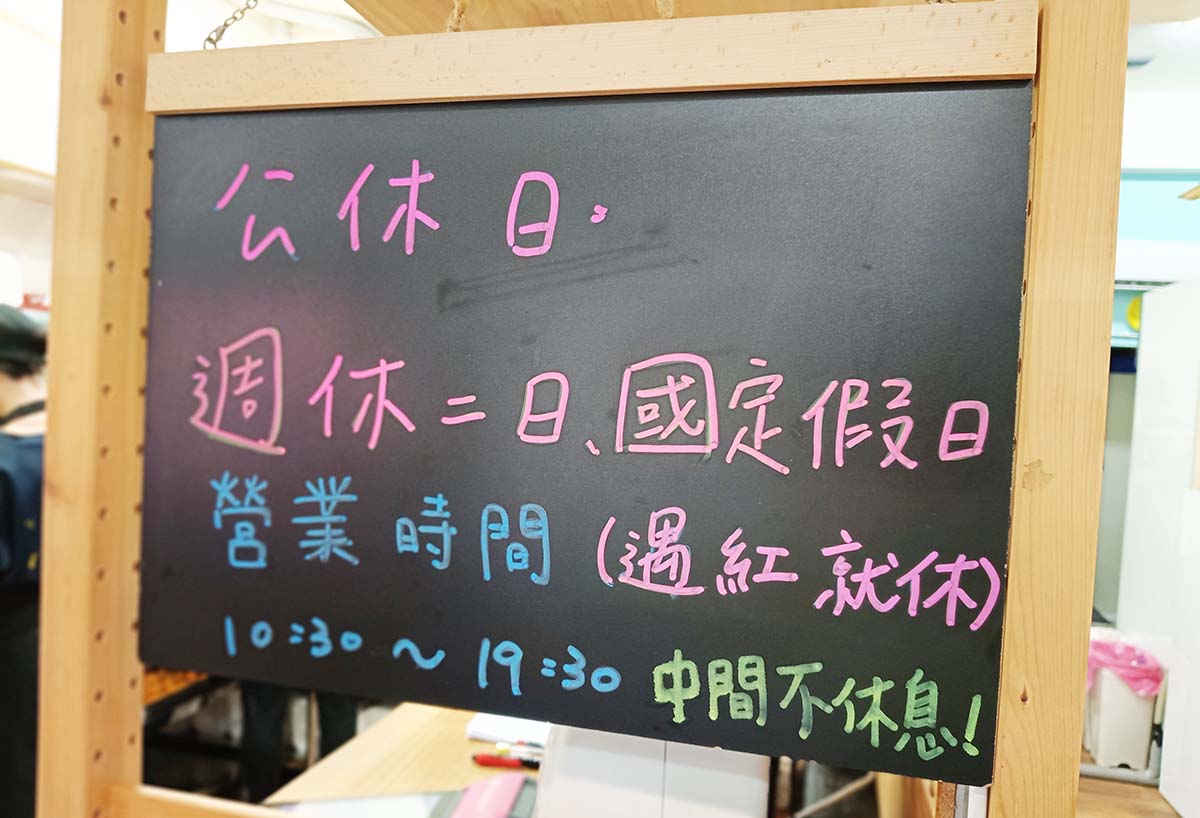 公休日.
週休二日、國定假日
營業時間 (遇紅就休)
10:30~19:30 中間不休息!